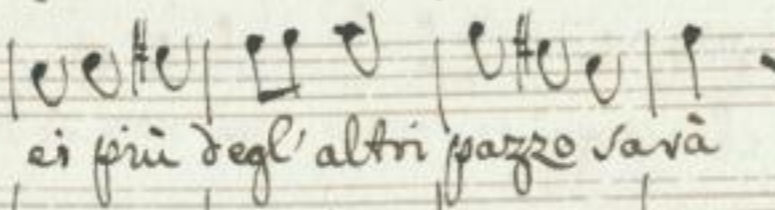 ei più degl' altri pazzo sarà